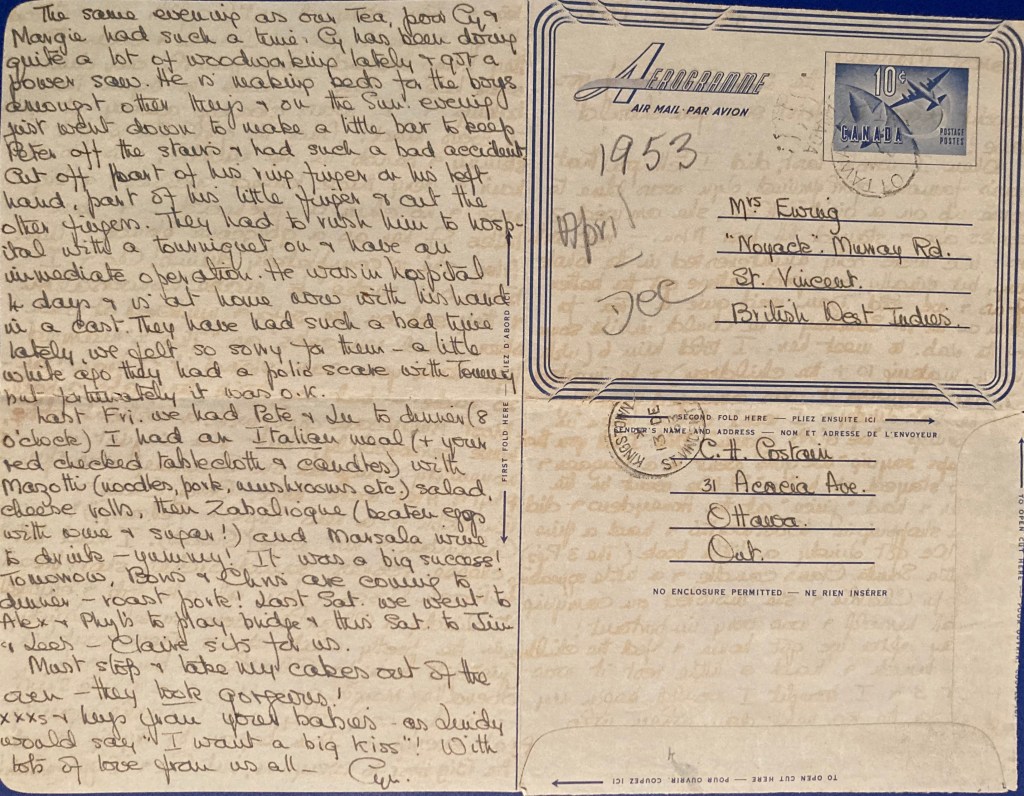 The same evening as our Tea, poor Cy &
Margie had such a time. Cy has been doing
quite a lot of woodworking lately & got a
power saw. He is making beds for the boys
amongst other things & on the Sun. evening
just went down to make a little bar to keep
Peter off the stairs & had such a bad accident.
Cut off part of his ring finger on his left
hand, part of his little finger & cut the
other fingers. They had to rush him to hosp-
ital with a tourniquet on & have an
immediate operation. He was in hospital
4 days & is at home now with his hand
in a cast. They have had such a bad time
lately, we felt so sorry for them – a little
while ago they had a polio scare with Tommy
but fortunately it was O.K.
Last Fri. we had Pete & Lu to dinner (8
o'clock) I had an Italian meal (+ your
red checked tablecloth & candles) with
Mazotti (noodles, pork, mushrooms etc.) salad,
cheese rolls, then Zabalioque (beaten eggs
with wine & sugar!) and Marsala wine
to drink – yummy! It was a big success!
Tomorrow, Bons & Chris are coming to
dinner – roast pork! Last Sat. we went to
Alex & Phyl's to play bridge & this Sat. to Jim
& Lees – Claire sits for us.
Must stop & take my cakes out of the
oven – they look gorgeous!
xxxs & hugs from your babies – as Lindy
would say "I want a big kiss"! With
lots of love from us all – Cyn.
FIRST FOLD HERE — PLIEZ D'ABORD ICI
AEROGRAMME
AIR MAIL · PAR AVION
10¢
CANADA
POSTAGE
POSTES
OTTAWA
1953
April
Dec
Mrs Ewing
"Noyack". Murray Rd.
St. Vincent.
British West Indies.
SECOND FOLD HERE — PLIEZ ENSUITE ICI
SENDER'S NAME AND ADDRESS — NOM ET ADRESSE DE L'ENVOYEUR
KINGSTOWN
13 DE
C. H. Costain
31 Acacia Ave.
Ottawa.
Ont.
NO ENCLOSURE PERMITTED — NE RIEN INSÉRER
TO OPEN CUT HERE
TO OPEN CUT HERE — POUR OUVRIR, COUPEZ ICI